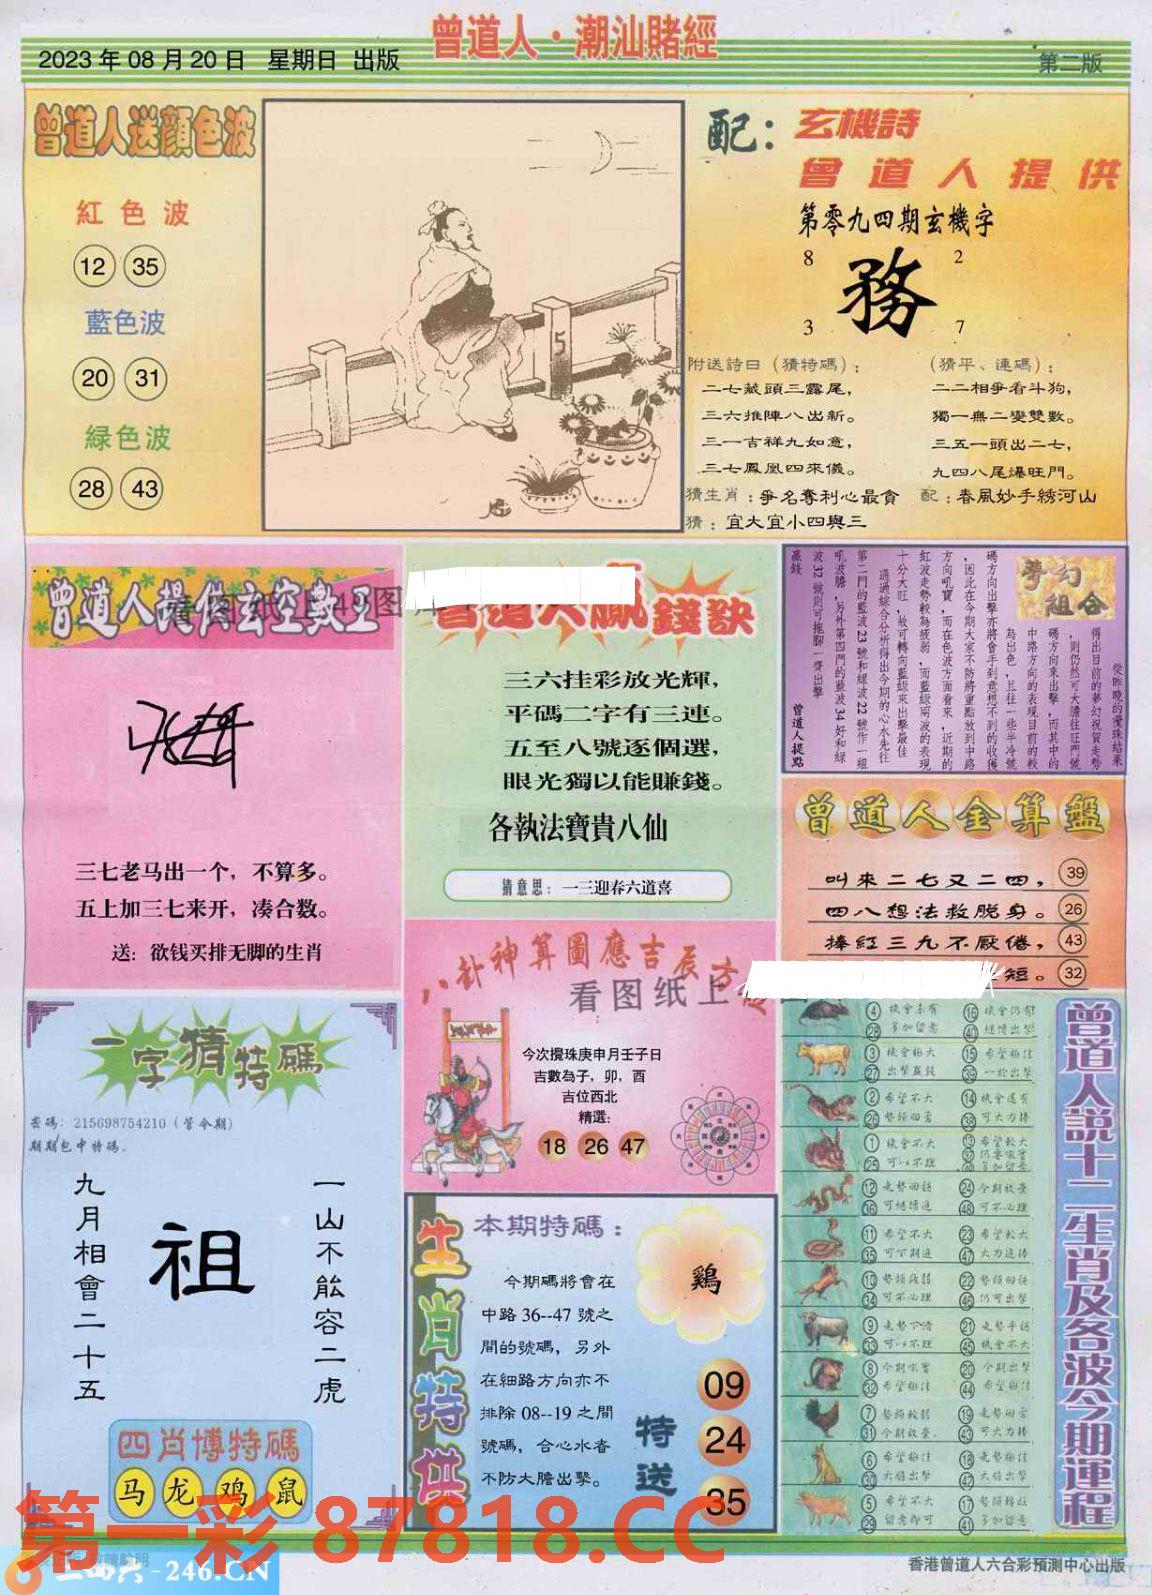 曾道人·潮汕賭經
2023年08月20日 星期日 出版
第二版
曾道人送顏色波
紅色波
12 35
藍色波
20 31
緑色波
28 43
5
配：
玄機詩
曾道人提供
第零九四期玄機字
8 2
務
3 7
附送詩曰（猜特碼）：
二七藏頭三露尾，
三六推陣八出新。
三一吉祥九如意，
三七鳳凰四來儀。
（猜平、連碼）：
二二相爭看斗狗，
獨一無二變雙數。
三五一頭出二七，
九四八尾爆旺門。
猜生肖：爭名奪利心最貪 配：春風妙手綉河山
猜：宜大宜小四與三
曾道人提供玄空數王
三七老马出一个，不算多。
五上加三七来开，凑合数。
送：欲钱买排无脚的生肖
曾道人贏錢訣
三六挂彩放光輝，
平碼二字有三連。
五至八號逐個選，
眼光獨以能賺錢。
各執法寶貴八仙
猜意思：一三迎春六道喜
夢幻
組合
從昨晚的攪珠結果
得出目前的夢幻祝賀走勢
，則仍然可大膽往旺門號
碼方向來出擊，而其中的
中路方向的表現目前的較
為出色，且往一些半冷號
碼方向出擊亦將會手到意想不到的收獲
，因此在今期大家不防將重點放到中路
方向吼寶，而在色波方面看來，近期的
紅波走勢較為疲弱，而藍綠兩波的表現
十分大旺，故可轉向藍綠來出擊最佳
通過綜合分析得出今期的心水先往
第二門的藍波23號和綠波22號作一組
吼波膽，另外第四門的藍波34好和綠
波32號則可拖腳一齊出擊
贏錢
曾道人提點
曾道人金算盤
叫來二七又二四， 39
四八想法救脫身。 26
捧紅三九不厭倦， 43
短。 32
八卦神算圖應吉辰方位
看图纸上
今次攪珠庚申月壬子日
吉數為子，卯，酉
吉位西北
精選：
18 26 47
一字猜特碼
密碼：215698754210（管今期）
期期包中特碼。
九月相會二十五
祖
一山不能容二虎
四肖博特碼
马 龙 鸡 鼠
生肖特供
本期特碼：
今期碼將會在
中路36--47號之
間的號碼，另外
在細路方向亦不
排除08--19之間
號碼，合心水者
不防大膽出擊。
鷄
特送
09
24
35
曾道人説十二生肖及各波今期運程
④ 機會未有 ⑯ 機會仍有
㉘ 多加留意 ㊵ 繼續出擊
③ 機會極大 ⑮ 希望極佳
㉗ 出擊贏錢 ㊴ 一於出擊
② 希望不大 ⑭ 機會還有
㉖ 勢頭回落 ㊳ 可大力捧
① 機會不大 ⑬ 希望較大
㉕ 可以不理 ㊲ ㊾ 多加留意
⑫ 走勢回落 ㉔ 今期放棄
㊱ 可繼續追 ㊽ 可不心理
⑪ 希望不大 ㉓ 希望較大
㉟ 可下期追 ㊼ 大力追捧
⑩ 勢頭疲弱 ㉒ 勢頭回落
㉞ 可不心理 ㊻ 仍可出擊
⑨ 走勢下滑 ㉑ 走勢平穩
㉝ 可以不理 ㊺ 機會不大
⑧ 今期吼實 ⑳ 今期出擊
㉜ 希望極佳 ㊹ 希望極佳
⑦ 勢頭較弱 ⑲ 走勢回落
㉛ 今期放棄. ㊸ 可大力捧
⑥ 希望極佳 ⑱ 走勢極佳
㉚ 大膽出擊 ㊷ 大膽出擊
⑤ 希望不大 ⑰ 勢頭轉旺
㉙ 留意即可 ㊶ 多加留意
第一彩 87818.CC
-246.CN
香港曾道人六合彩預測中心出版